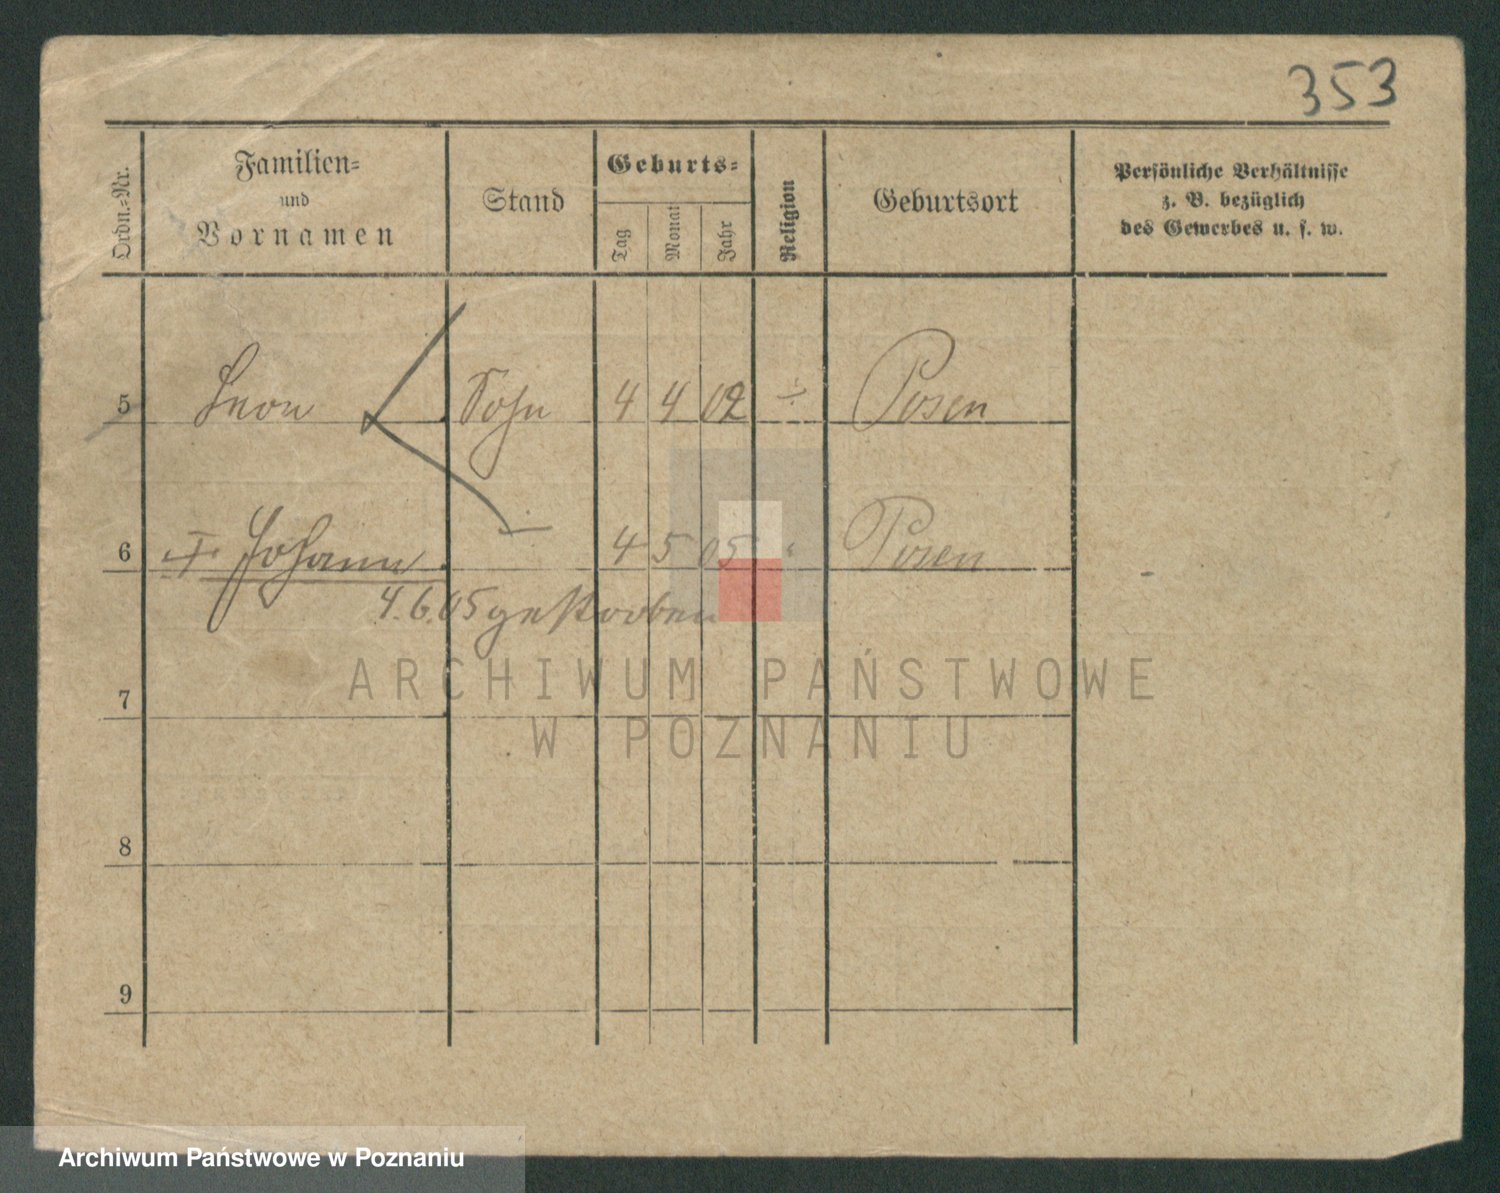 353
Ordn.-Nr.
Familien-
und
Vornamen
Stand
Geburts-
Tag
Monat
Jahr
Religion
Geburtsort
Persönliche Verhältnisse
z. B. bezüglich
des Gewerbes u. s. w.
5 Leon Sohn 4 4 02 Posen
6 Johann 4 5 05 " Posen
4.6.05 gestorben
7
8
9
ARCHIWUM PAŃSTWOWE
W POZNANIU
Archiwum Państwowe w Poznaniu